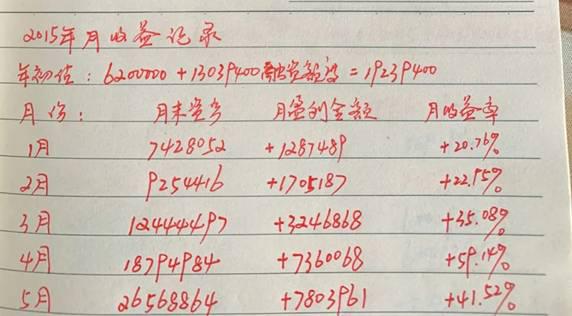 2015年月收益记录
年初值：6200000+13039400融资额度=19239400
月份： 月末资产 月盈利金额 月收益率
1月 7428052 +1287489 +20.76%
2月 9254416 +1705187 +22.95%
3月 12444497 +3246868 +35.08%
4月 18794984 +7360068 +59.14%
5月 26568864 +7803961 +41.52%